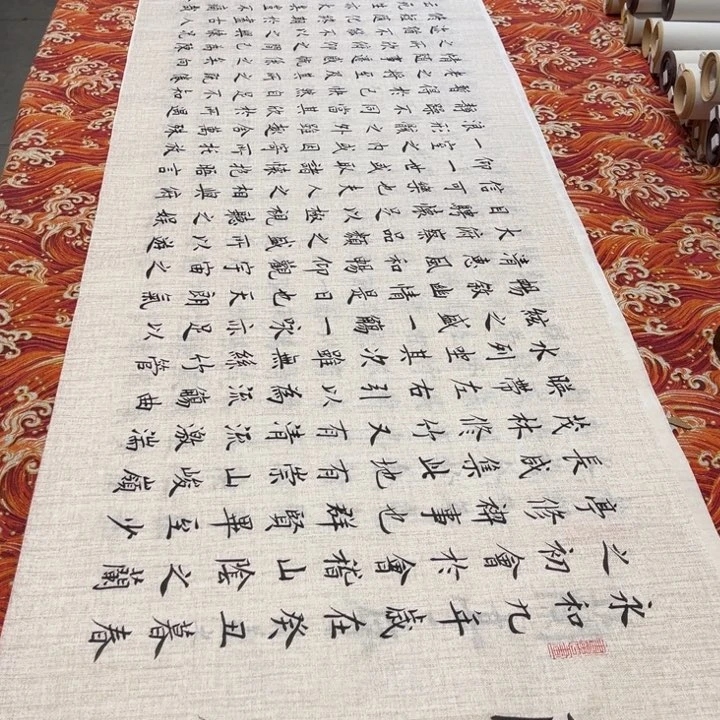 永和九年歲在癸丑暮春
之初會於會稽山陰之蘭
亭修禊事也群賢畢至少
長咸集此地有崇山峻嶺
茂林修竹又有清流激湍
暎帶左右引以為流觴曲
水列坐其次雖無絲竹管
絃之盛一觴一詠亦足以
暢敘幽情是日也天朗氣
清惠風和暢仰觀宇宙之
大俯察品類之盛所以遊
目騁懷足以極視聽之娛
信可樂也夫人之相與俯
仰一世或取諸懷抱晤言
一室之內或因寄所託放
浪形骸之外雖趣舍萬殊
靜躁不同當其欣於所遇
暫得於己快然自足不
老之將至及其所之既
情隨事遷感慨係之矣向
之所欣俛仰之間已為陳